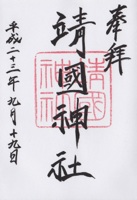 奉拜
靖國神社
平成二十三年九月十九日
靖國神社